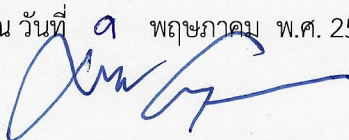 ณ วันที่ ๑ พฤษภาคม พ.ศ. 25